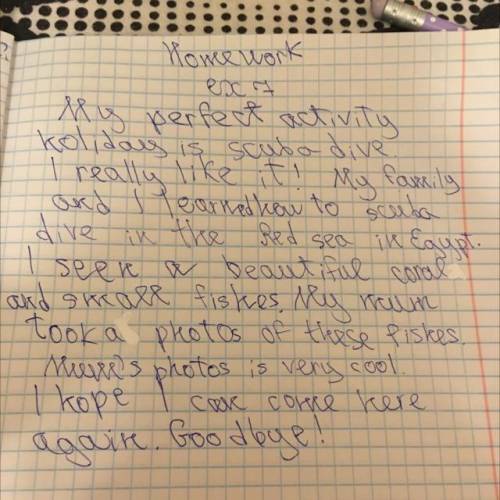 Homework
ex 7
My perfect activity
holiday is scuba dive.
I really like it! My family
and I learned how to scuba
dive in the Red sea in Egypt.
I seen a beautiful coral
and small fishes. My mum
took a photos of these fishes.
Mum's photos is very cool.
I hope I can come here
again. Goodbye!